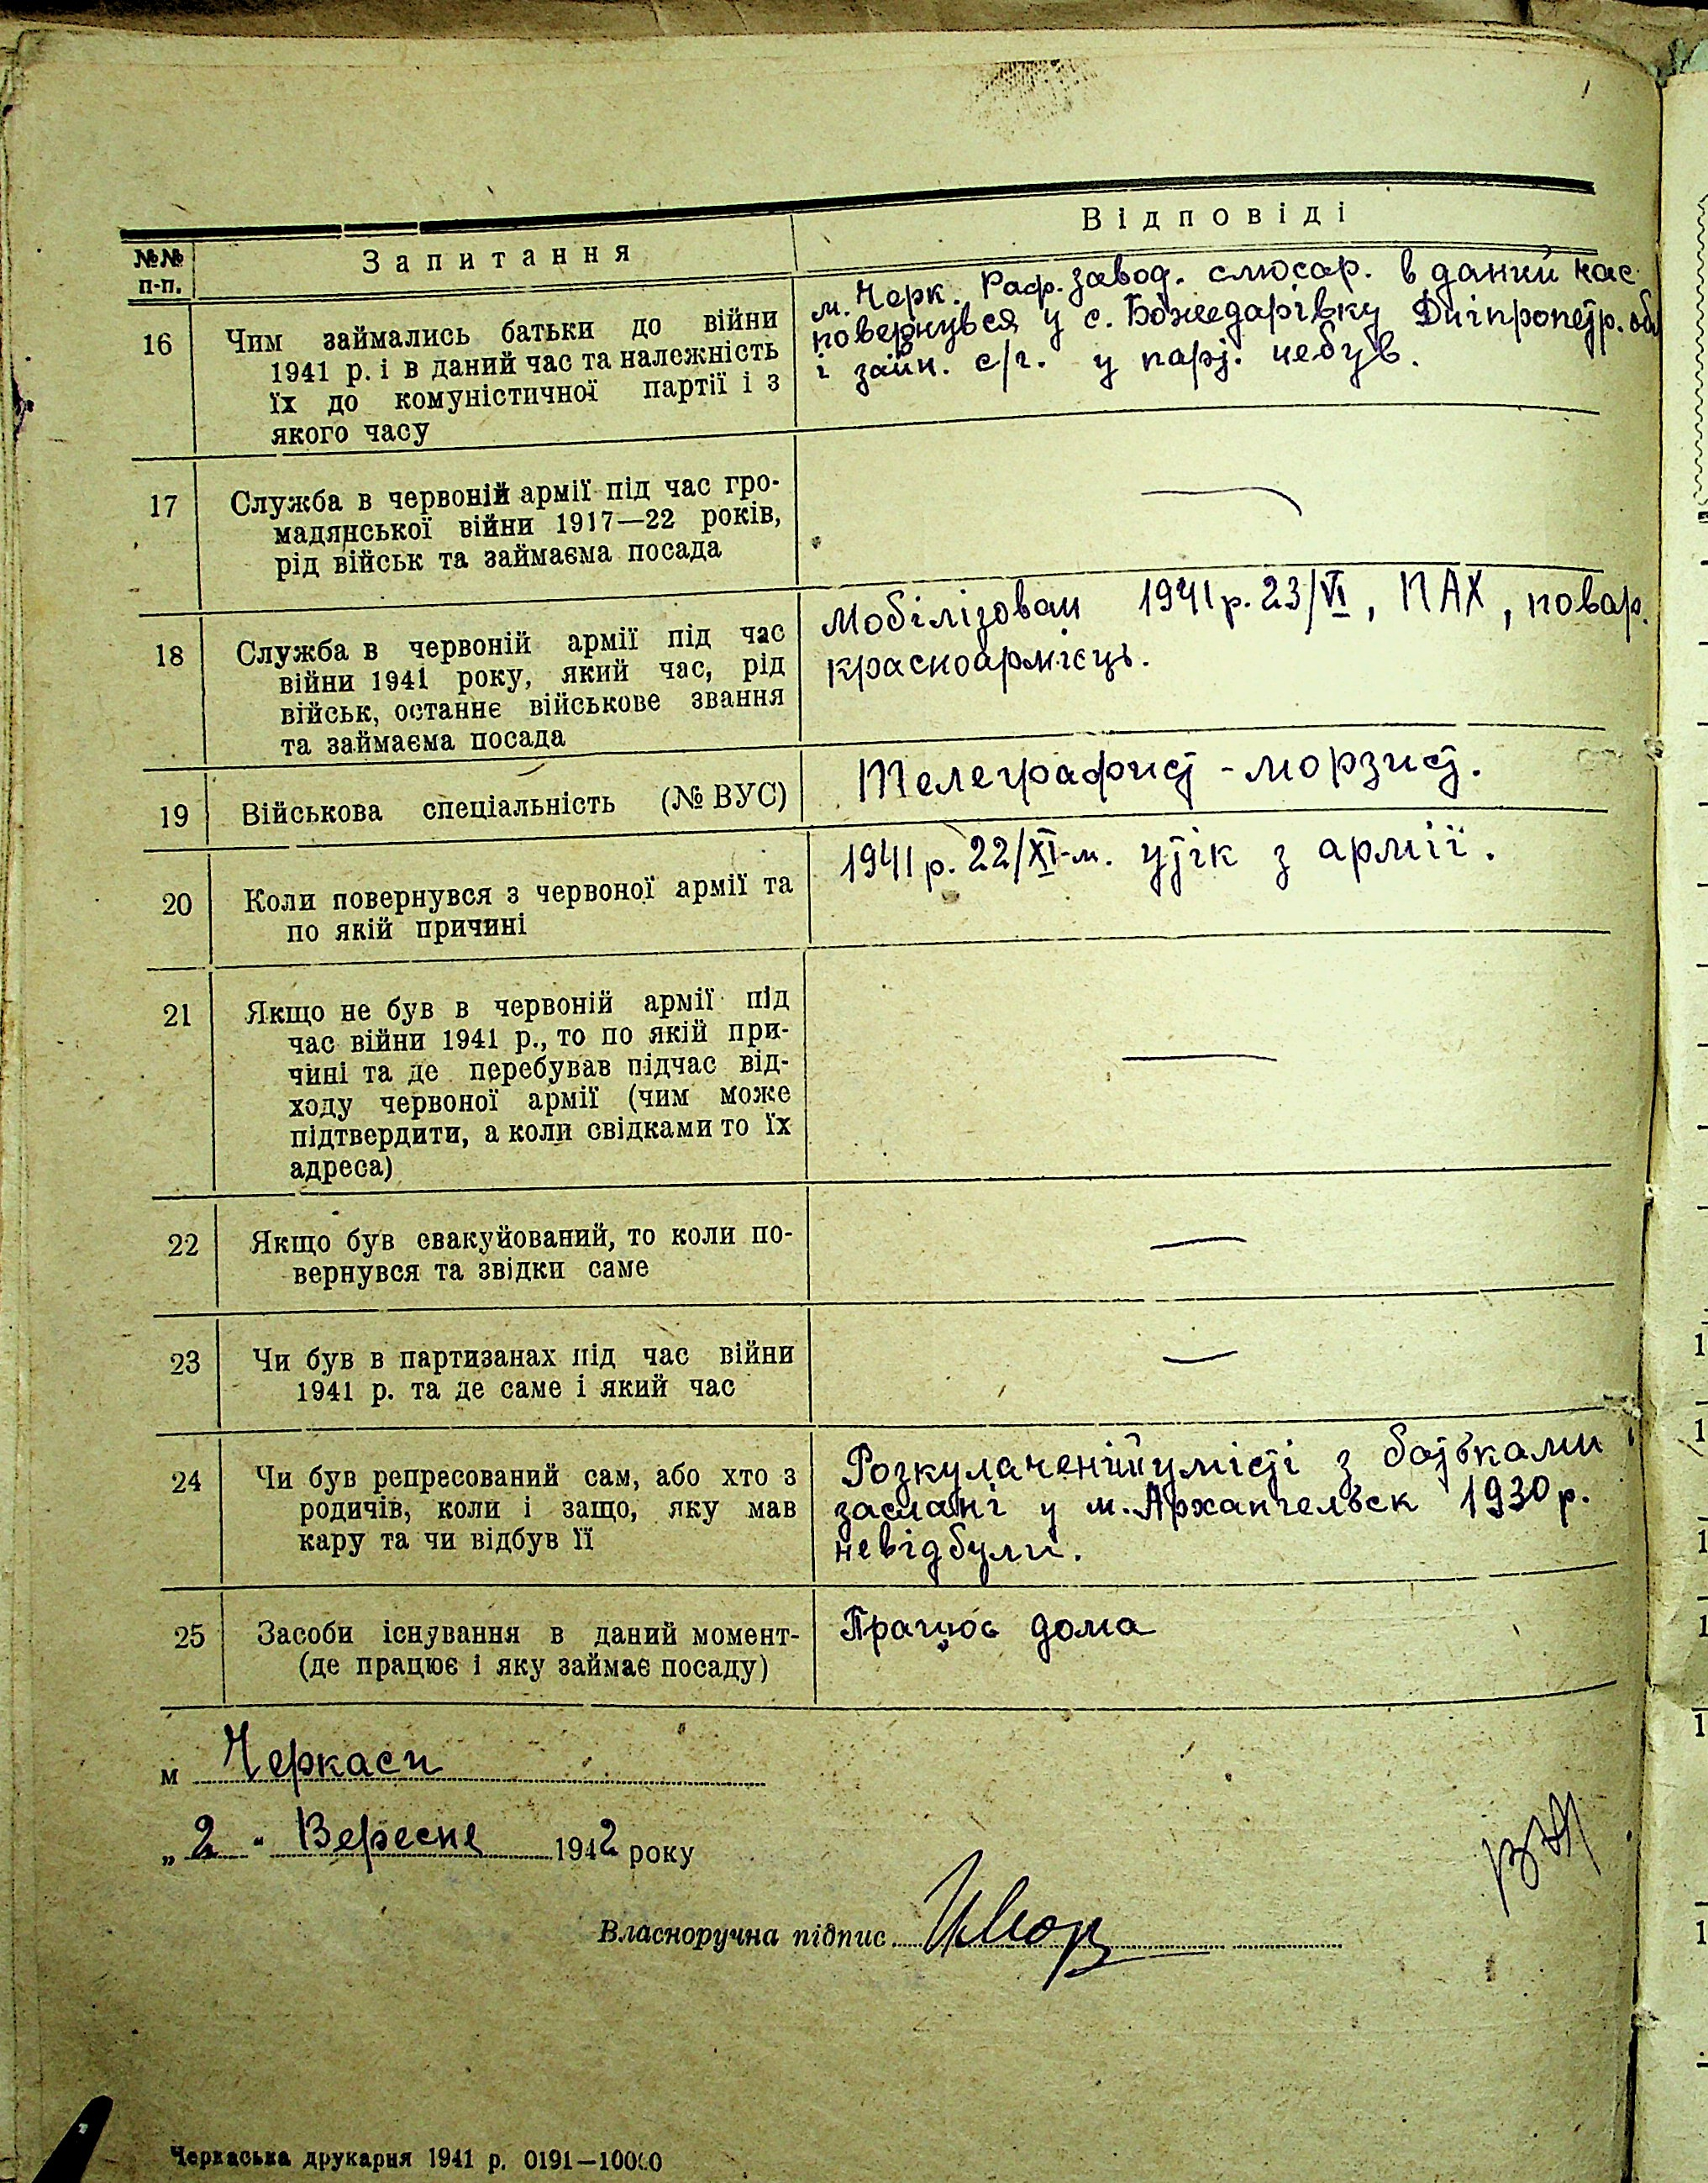 Відповіді
№№ п-п.
Запитання
16
Чим займались батьки до війни
1941 р. і в даний час та належність
їх до комуністичної партії і з
якого часу
м. Черк. Раф. завод. слюсар. в даний час
повернувся у с. Божедарівку Дніпропетр. обл
і займ. с/г. у парт. небув.
17
Служба в червоній армії під час гро-
мадянської війни 1917—22 років,
рід військ та займаєма посада
18
Служба в червоній армії під час
війни 1941 року, який час, рід
військ, останнє військове звання
та займаєма посада
Мобілізован 1941 р. 23/VI, ПАХ, повар.
красноармієць.
19
Військова спеціальність (№ ВУС)
Телеграфист - морзист.
20
Коли повернувся з червоної армії та
по якій причині
1941 р. 22/XI-м. утік з армії.
21
Якщо не був в червоній армії під
час війни 1941 р., то по якій при-
чині та де перебував підчас від-
ходу червоної армії (чим може
підтвердити, а коли свідками то їх
адреса)
22
Якщо був евакуйований, то коли по-
вернувся та звідки саме
23
Чи був в партизанах під час війни
1941 р. та де саме і який час
24
Чи був репресований сам, або хто з
родичів, коли і защо, яку мав
кару та чи відбув її
Розкулачений умісті з батьками і
заслані у м. Архангельск 1930 р.
невідбули.
25
Засоби існування в даний момент-
(де працює і яку займає посаду)
Працює дома
м Черкаси
„2" Вересне 1942 року
Власноручна підпис
Черкаська друкарня 1941 р. 0191—10000